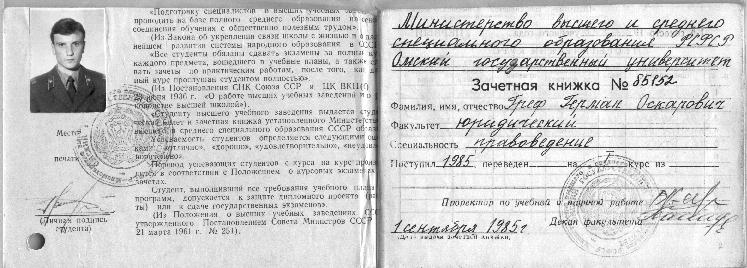 «Подготовку специалистов в высших учебных
проводить на базе полного среднего образования на
соединения обучения с общественно полезным трудом».
(Из Закона об укреплении связи школы с жизнью и о
нейшем развитии системы народного образования в СССР
«Все студенты обязаны сдавать экзамены за полный
каждого, вошедшего в учебные планы, а также
вать зачеты по практическим работам, после того, как
ный курс прослушан студентом полностью».
(Из Постановления СНК Союза ССР и ЦК ВКП(б)
июня 1936 г. «О работе высших учебных заведений и о
ководстве высшей школой»).
Студенту высшего учебного заведения выдается
билет и зачетная книжка установленного Министерством
высшего и среднего специального образования СССР
Успеваемость студентов определяется следующими
ками: «отлично», «хорошо», «удовлетворительно»,
Перевод успевающих студентов с курса на курс
в соответствии с Положением о курсовых экзаменах
зачетах.
Студент, выполнивший все требования учебного плана
программ, допускается к защите дипломного проекта
ты) или к сдаче государственных экзаменов».
(Из Положения о высших учебных заведениях СССР
утвержденного Постановлением Совета Министров СССР
21 марта 1961 г. № 251).
Место
печати
(Личная подпись
студента)
Министерство высшего и среднего
специального образования РСФСР
Омский государственный университет
Зачетная книжка № 85152
Фамилия, имя, отчество Греф Герман Оскарович
Факультет юридический
Специальность правоведение
Поступил 1985 переведен на I курс из
Проректор по учебной и научной работе
Декан факультета
1 сентября 1985 г
(Дата выдачи зачетной книжки)
2